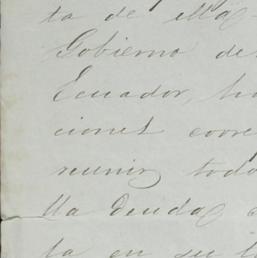 ta de ella
Gobierno de
Ecuador, ha
ciones corre
reunir todo
lla deuda
ta en su